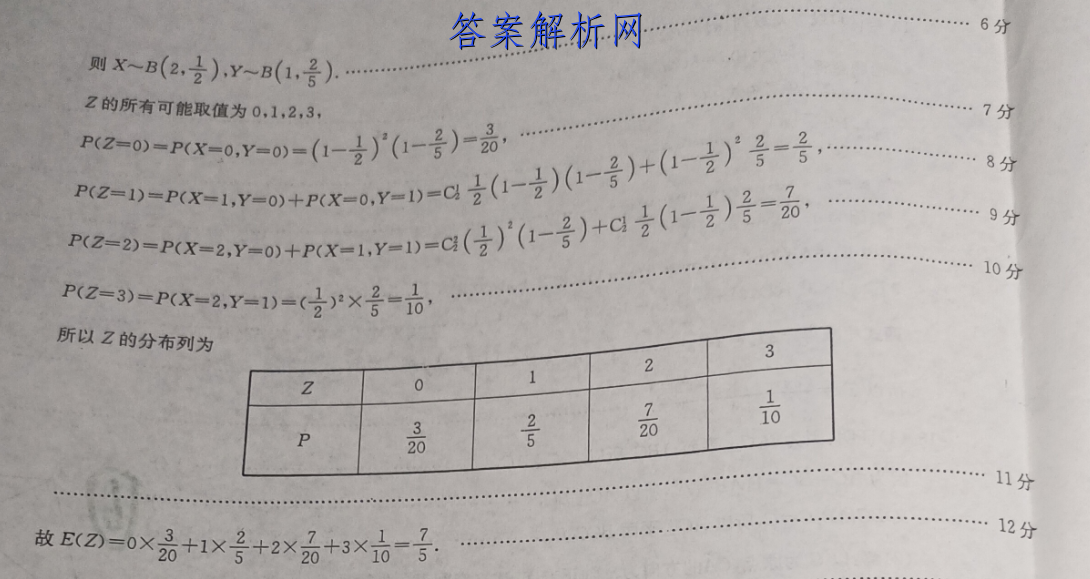 答案解析网
6分
则 X~B(2,1/2),Y~B(1,2/5).
Z的所有可能取值为0,1,2,3,
7分
P(Z=0)=P(X=0,Y=0)=(1-1/2)²(1-2/5)=3/20,
8分
P(Z=1)=P(X=1,Y=0)+P(X=0,Y=1)=C₂¹ 1/2(1-1/2)(1-2/5)+(1-1/2)² 2/5=2/5,
9分
P(Z=2)=P(X=2,Y=0)+P(X=1,Y=1)=C₂²(1/2)²(1-2/5)+C₂¹ 1/2(1-1/2)2/5=7/20,
10分
P(Z=3)=P(X=2,Y=1)=(1/2)²×2/5=1/10,
所以Z的分布列为
Z 0 1 2 3
P 3/20 2/5 7/20 1/10
11分
12分
故E(Z)=0×3/20+1×2/5+2×7/20+3×1/10=7/5.